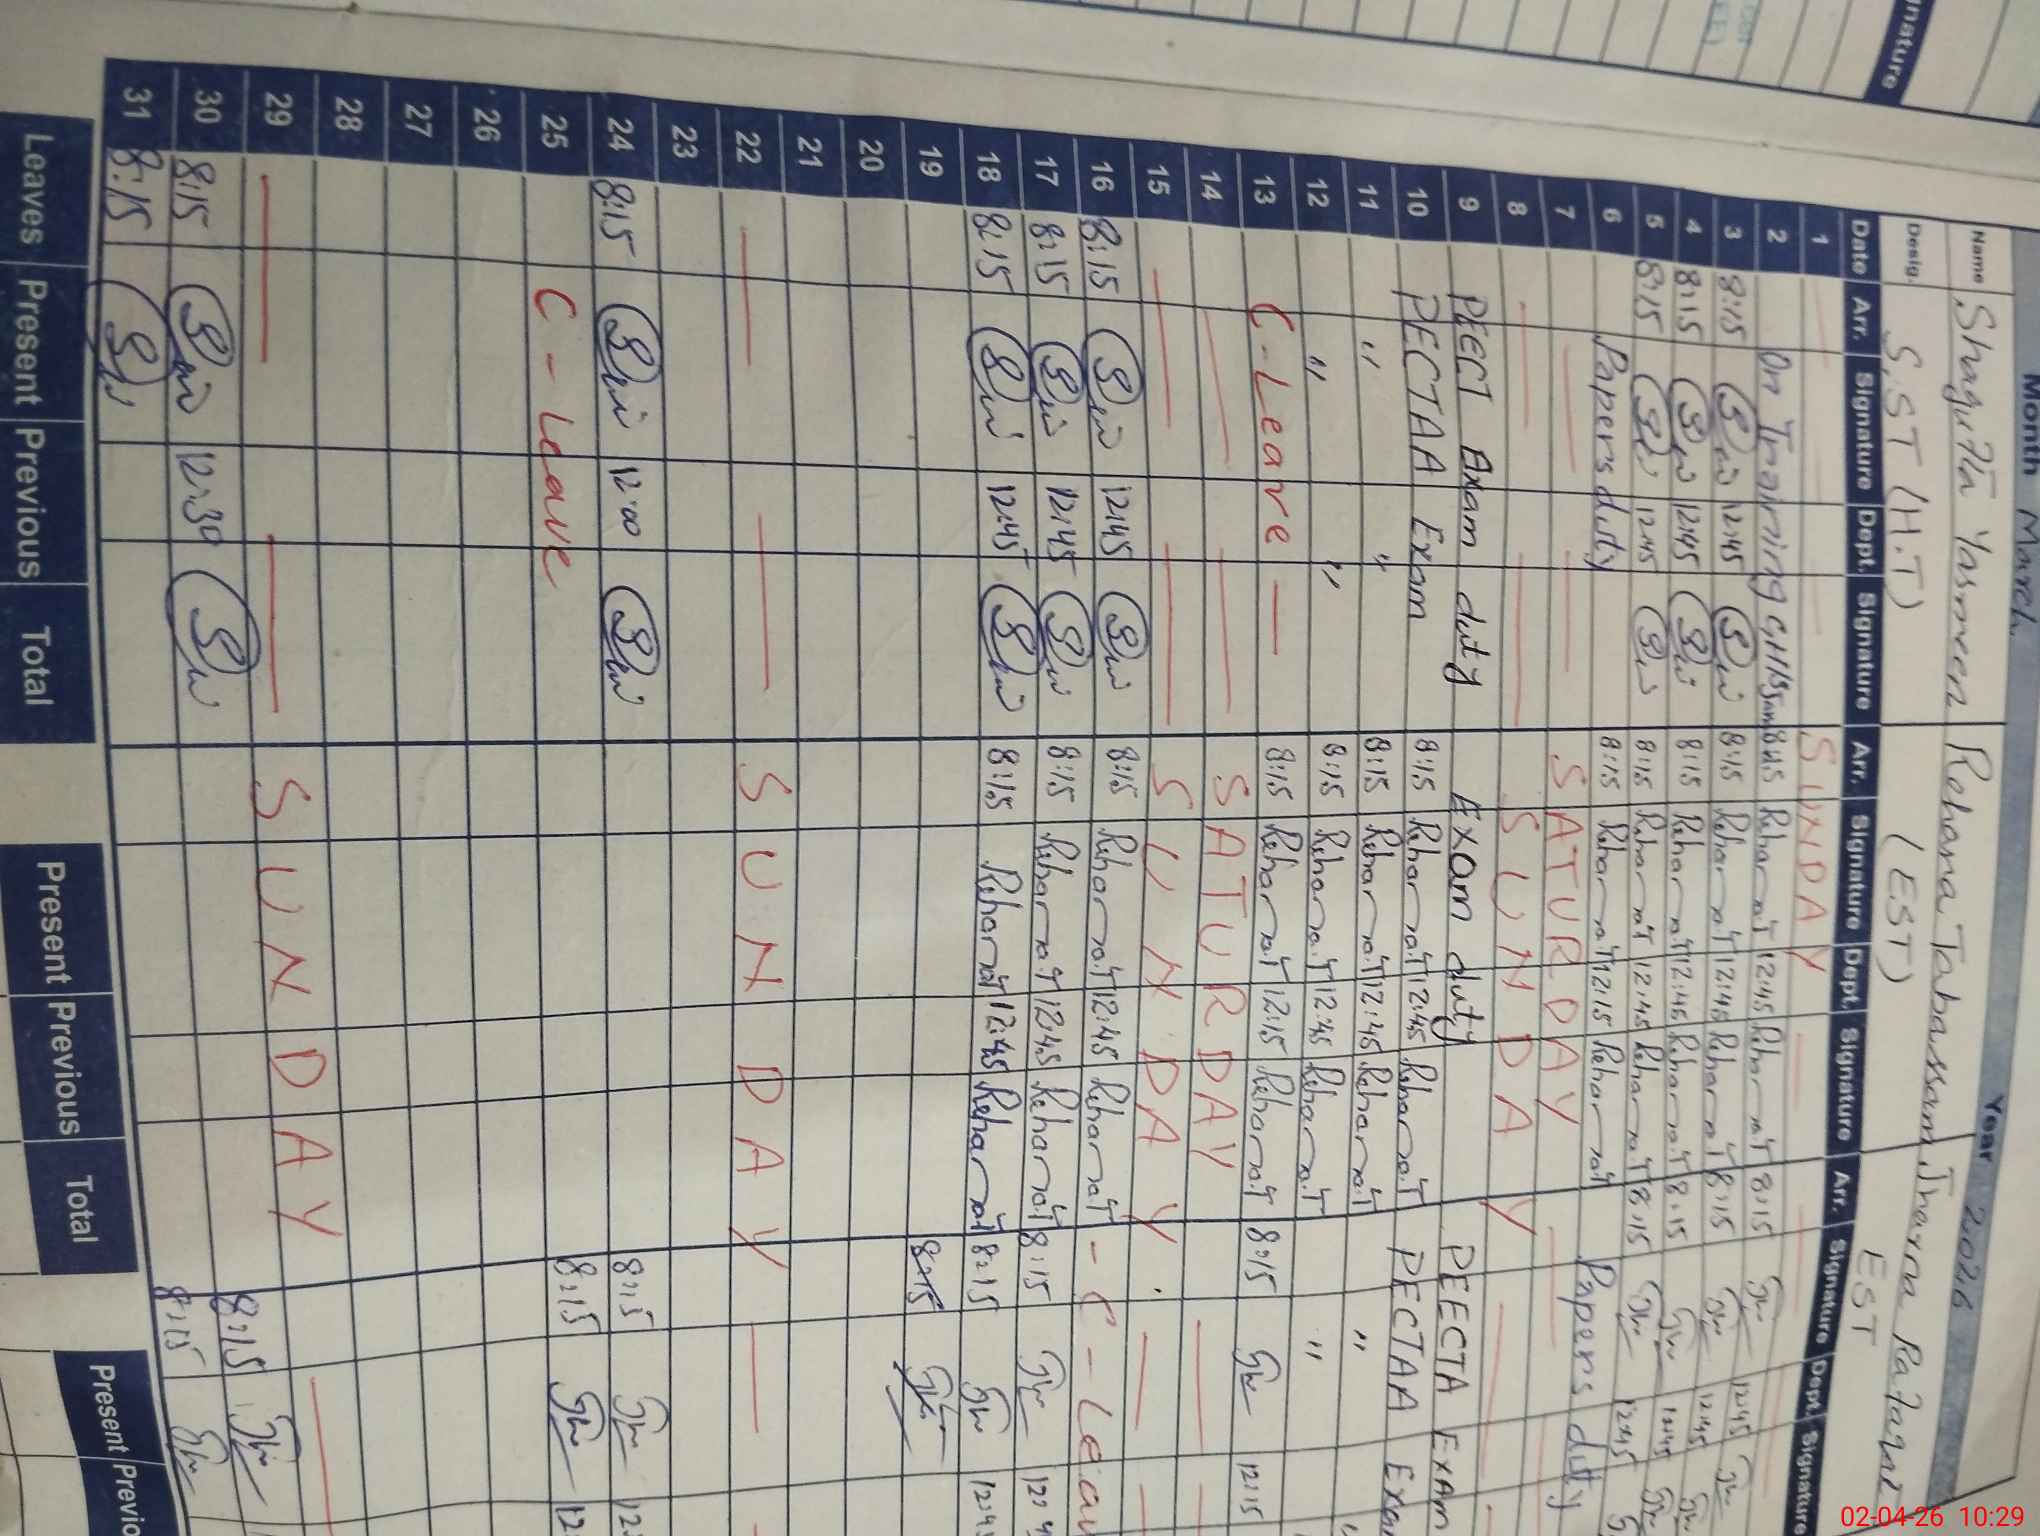 Month March Year 2026
Name Shagufta Yasmeen Rehana Tabassam Tharna Pa
Desig. S.ST (H.T) (EST) EST
Date Arr. Signature Dept. Signature Arr. Signature Dept. Signature Arr. Signature Dept. Signature
1 SUNDAY
2 On Training 8:45 Rehana.T 12:45 Rehana.T 8:15 12:45
3 8:15 12:45 8:15 Rehana.T 12:45 Rehana.T 8:15 12:45
4 8:15 12:45 8:15 Rehana.T 12:45 Rehana.T 8:15 12:45
5 8:15 12:45 8:15 Rehana.T 12:45 Rehana.T 8:15 12:45
6 Papers duty 8:15 Rehana.T 12:15 Rehana.T Papers duty
7 SATURDAY
8 SUNDAY
9 PEECT Exam duty Exam duty PEECTA Exam
10 PECTAA Exam 8:15 Rehana.T 12:45 Rehana.T PECTAA Exam
11 " " 8:15 Rehana.T 12:45 Rehana.T " "
12 " " 8:15 Rehana.T 12:45 Rehana.T "
13 C-Leave 8:15 Rehana.T 12:15 Rehana.T 8:15 12:15
14 SATURDAY
15 SUNDAY
16 8:15 12:45 8:15 Rehana.T 12:45 Rehana.T - C-Leav
17 8:15 12:45 8:15 Rehana.T 12:45 Rehana.T 8:15
18 8:15 12:45 8:15 Rehana.T 12:45 Rehana.T 8:15
19 8:15
20
21
22 SUNDAY
23
24 8:15 12:00 8:15
25 C-Leave 8:15
26
27
28
29 SUNDAY
30 8:15 12:30 8:15
31 8:15 8:15
Leaves Present Previous Tottal Present Previous Total Present Previo
nature
02-04-26 10:29